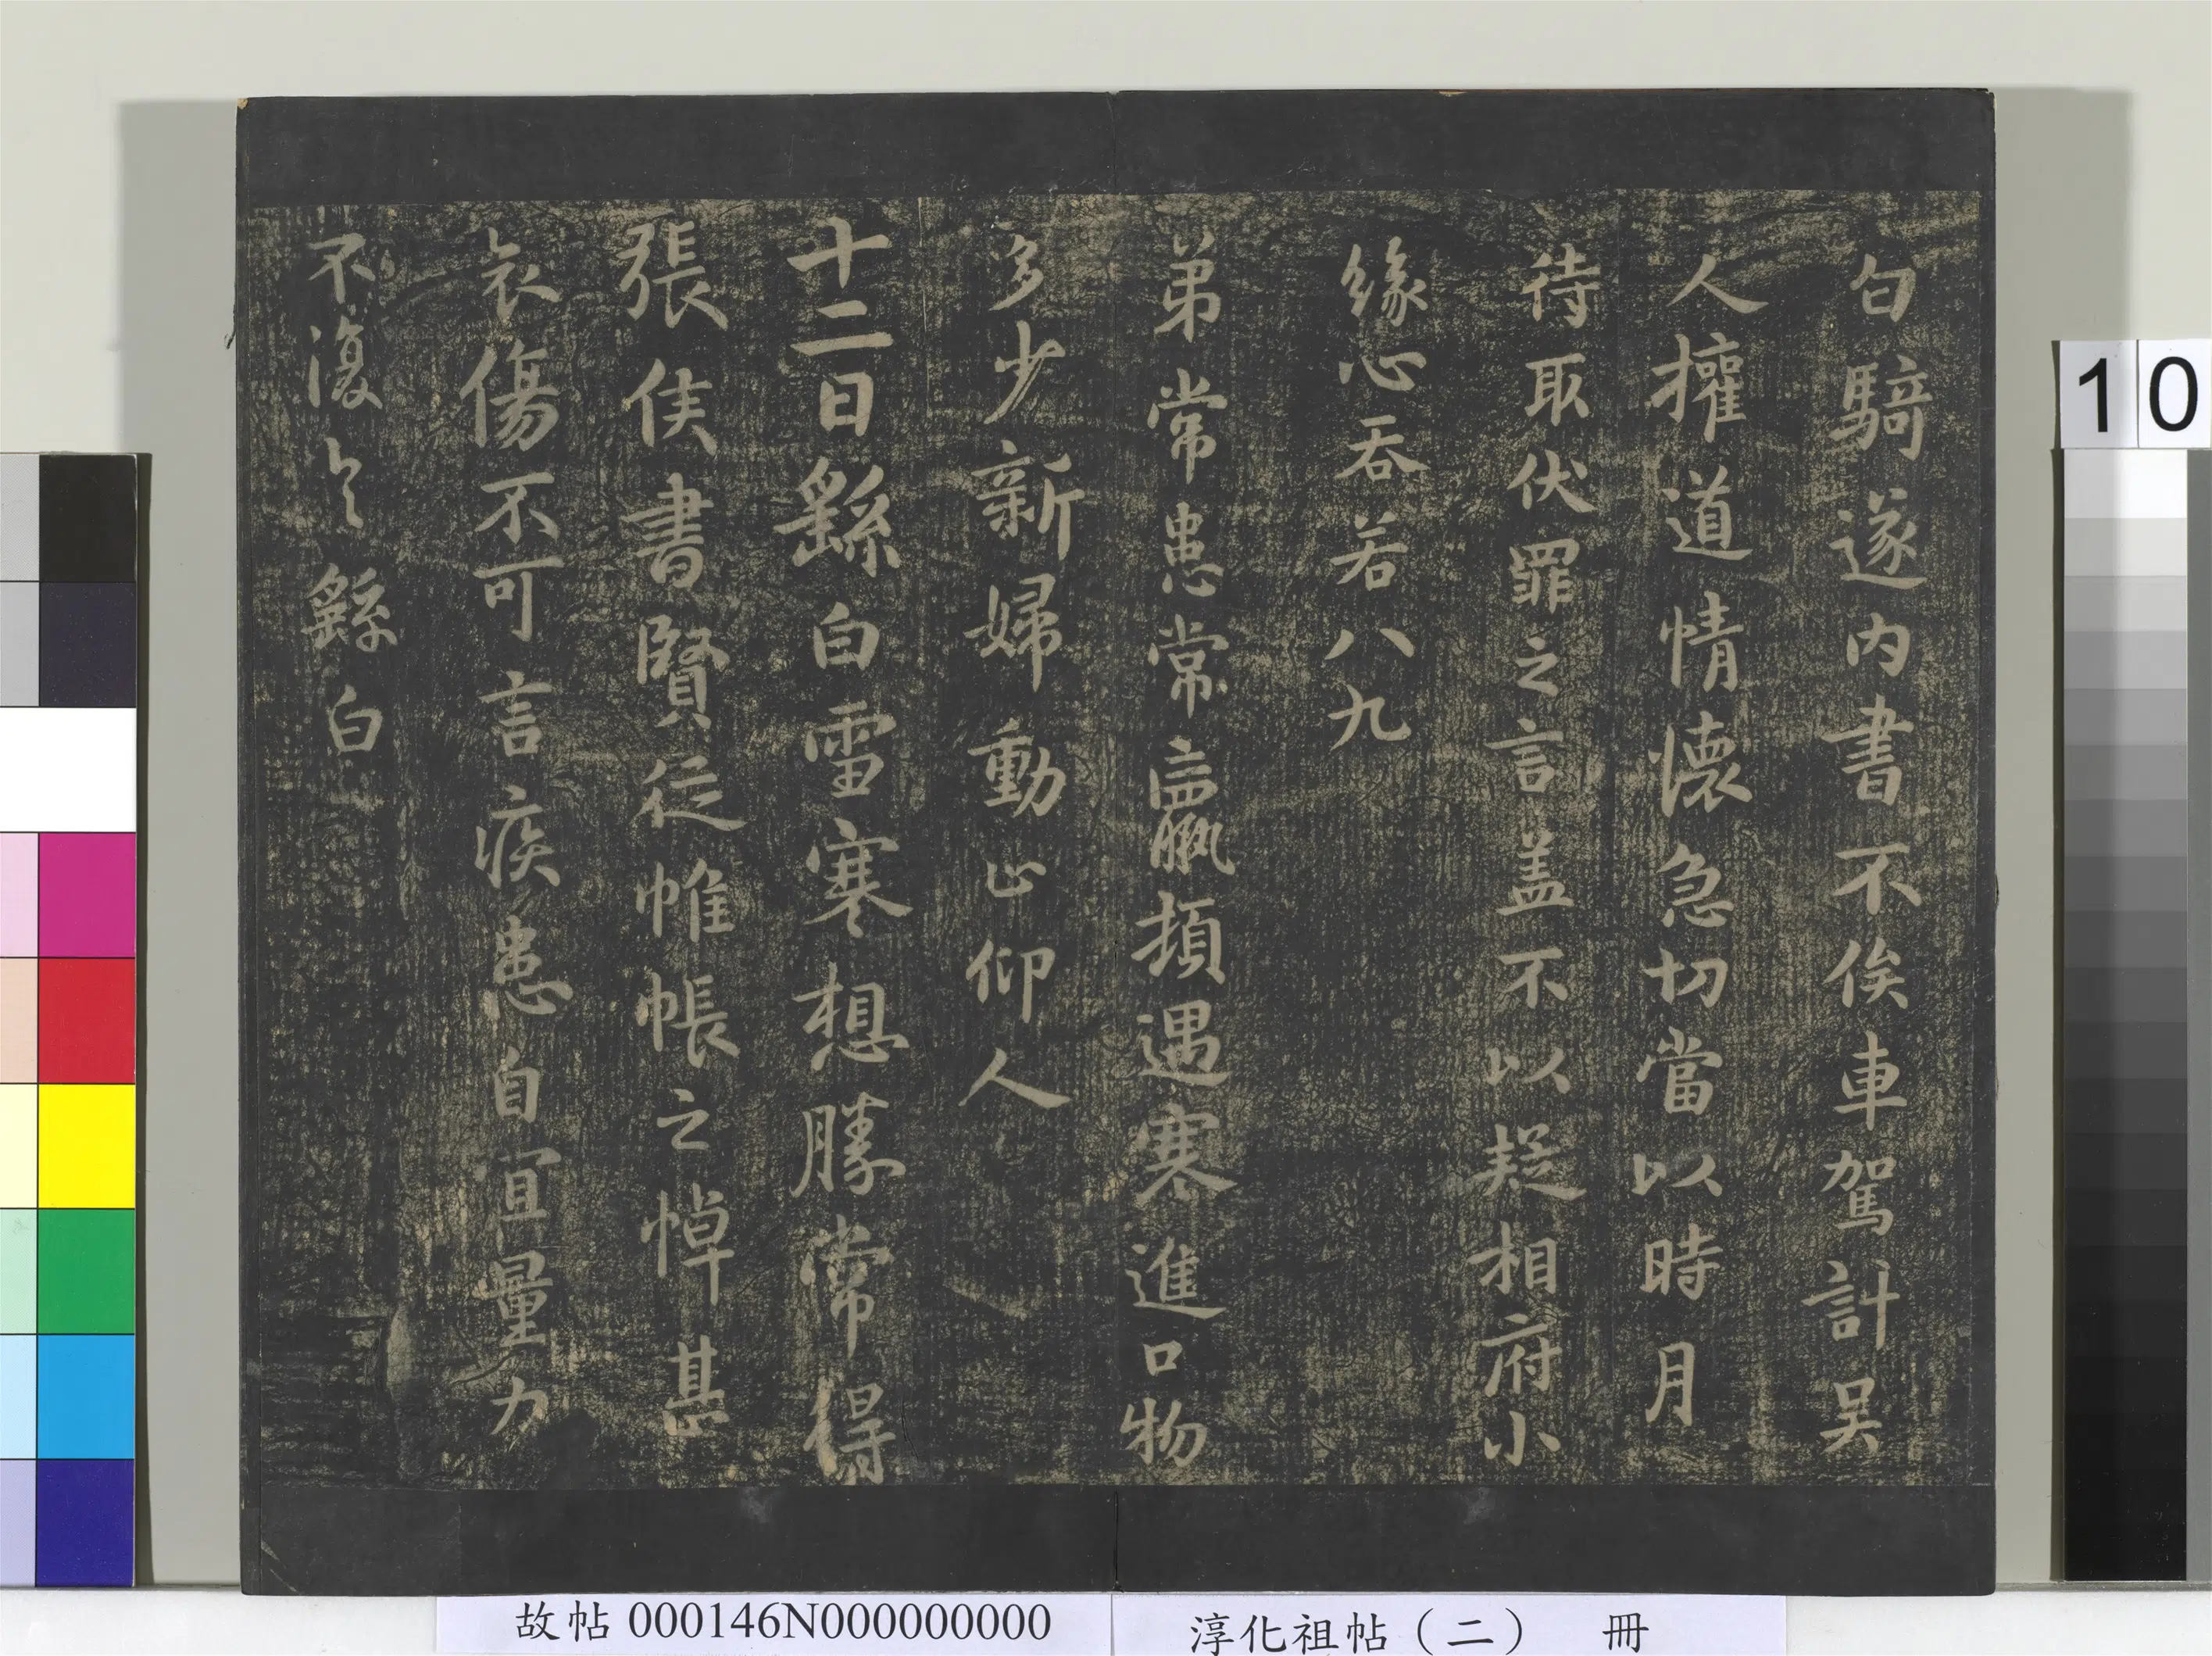 白騎遂内書不俟車駕計吴
人權道情懷急切當以時月
待取伏罪之言盖不以疑相府小
緣心吞若八九
弟常患常羸頓遇寒進口物
多少新婦動止仰人
十二日繇白雪寒想勝常得
張侯書賢從帷帳之悼甚
哀傷不可言疾患自宜量力
不復繇白
故帖000146N000000000
淳化祖帖（二） 冊
10